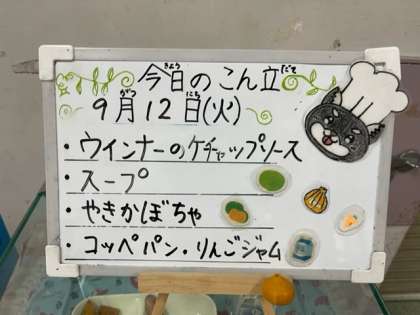 今日のこん立
9月12日(火)
・ウインナーのケチャップソース
・スープ
・やきかぼちゃ
・コッペパン・りんごジャム